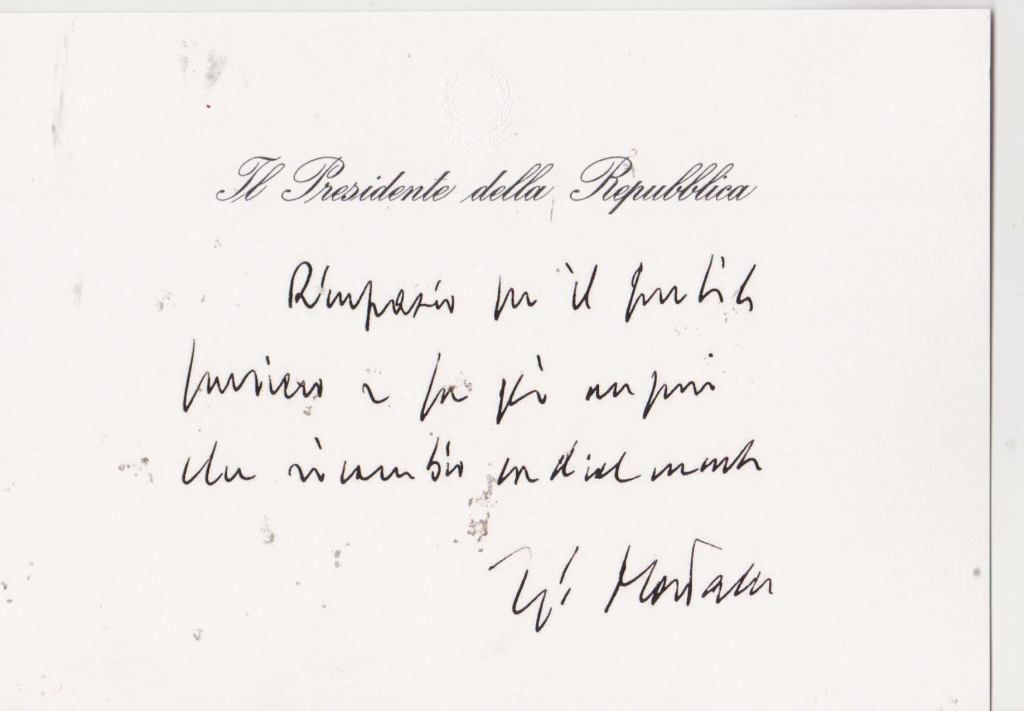 Il Presidente della Repubblica
Ringrazio per il gentile
pensiero e per gli auguri
che ricambio cordialmente
Sergio Mattarella